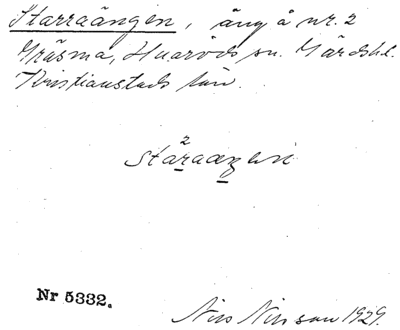 Starraängen, äng å nr. 2
Gräsma, Huaröds sn. Gärds hd.
Kristianstads län.
Nr 5332.
Nils Nilsson 1929.